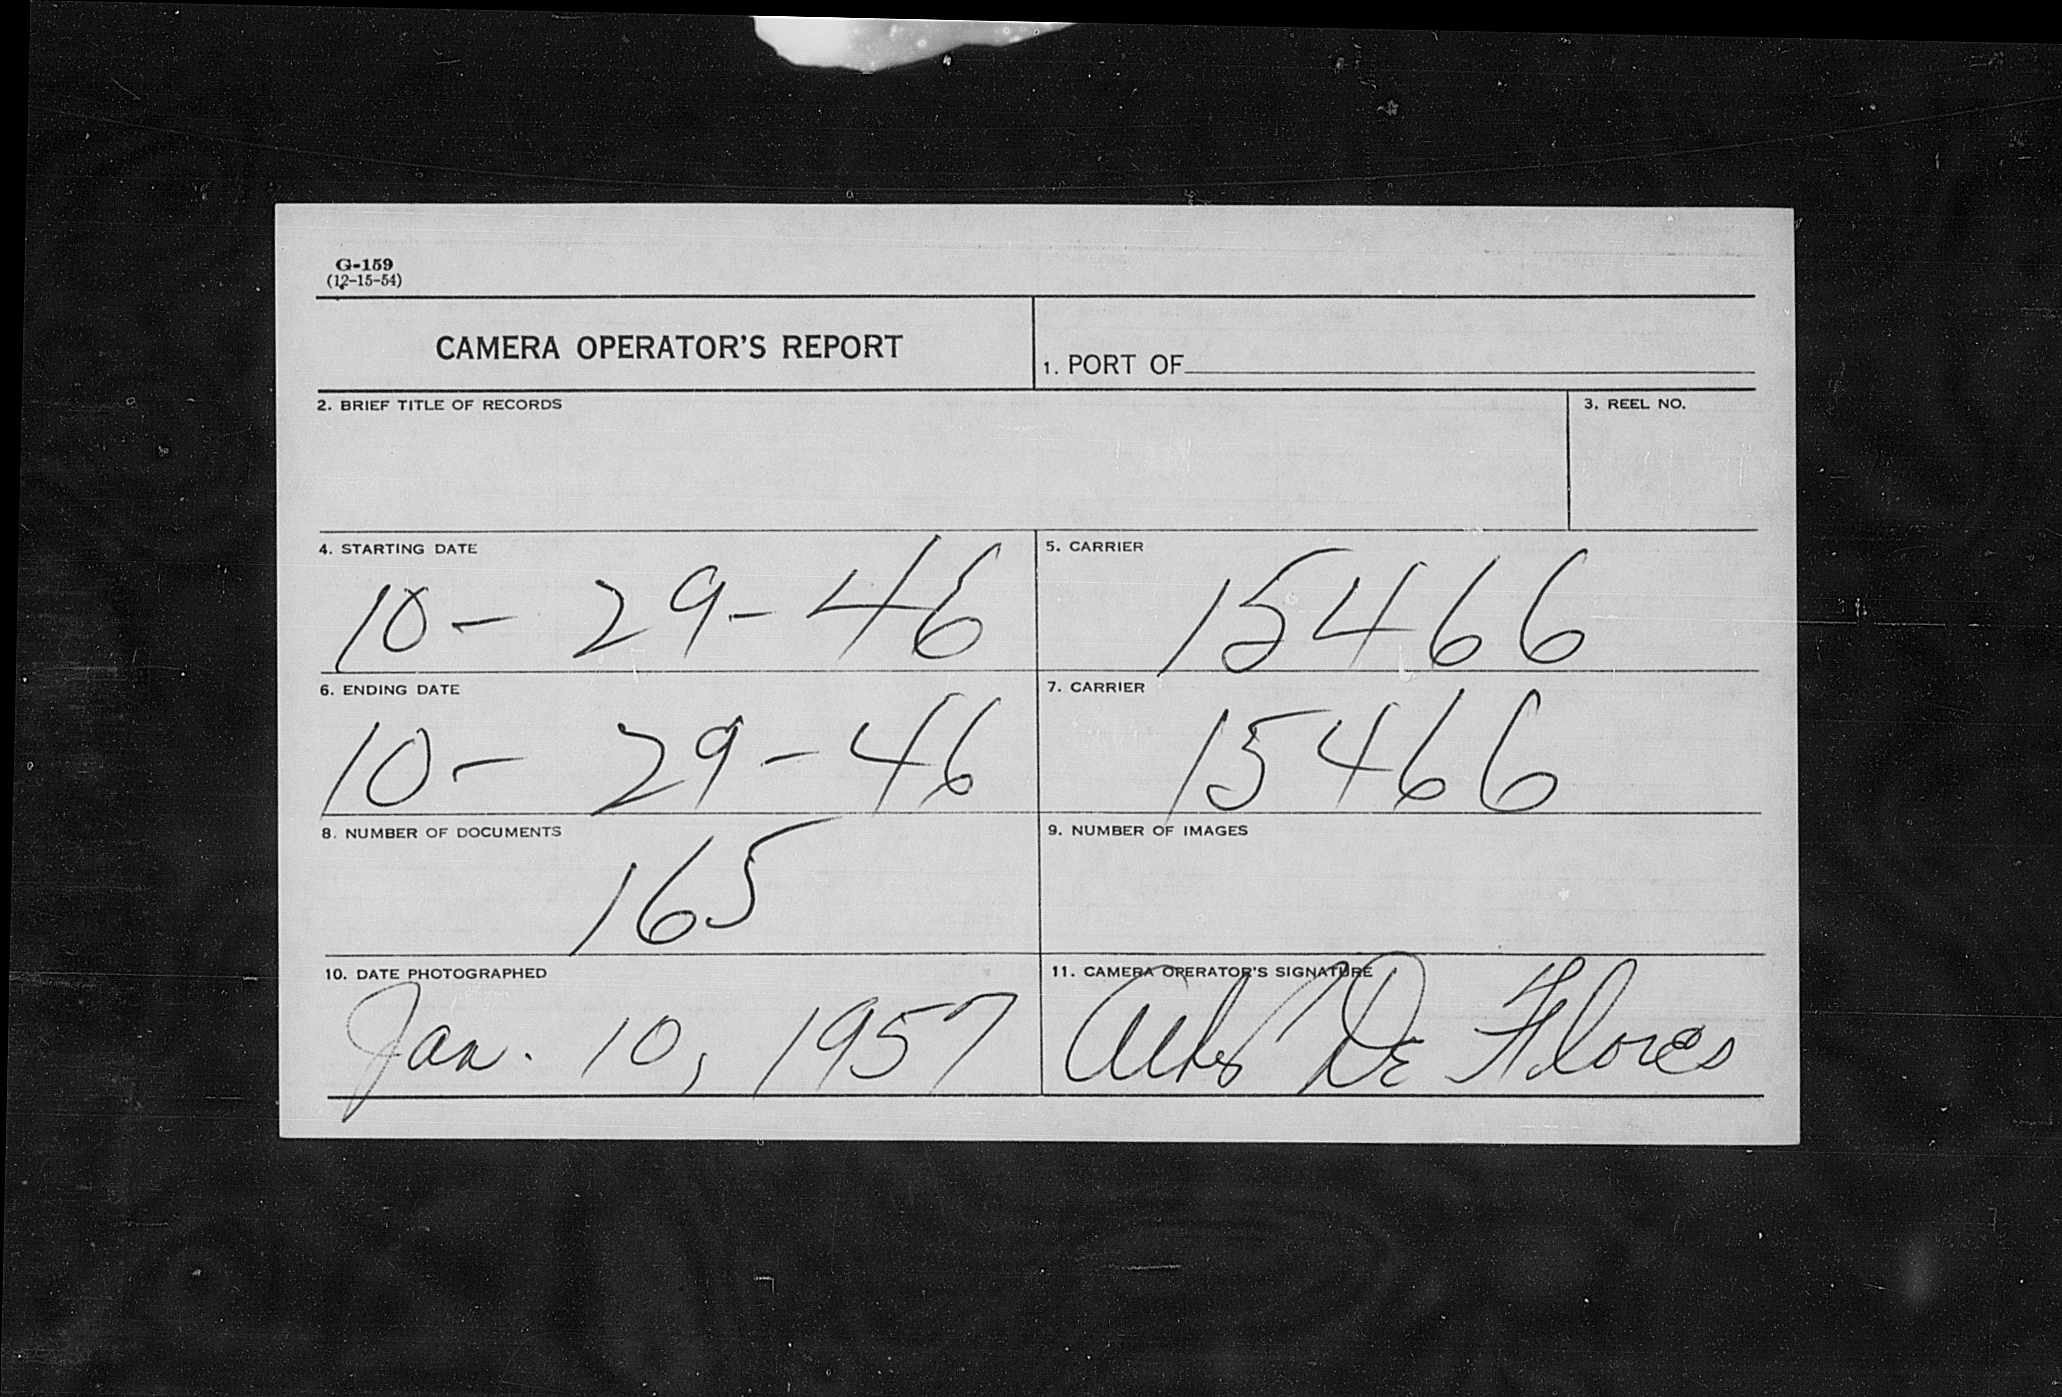 G-159
(12-15-54)
CAMERA OPERATOR'S REPORT
1. PORT OF
2. BRIEF TITLE OF RECORDS
3. REEL NO.
4. STARTING DATE
10-29-46
5. CARRIER
15466
6. ENDING DATE
10-29-46
7. CARRIER
15466
8. NUMBER OF DOCUMENTS
165
9. NUMBER OF IMAGES
10. DATE PHOTOGRAPHED
Jan. 10, 1957
11. CAMERA OPERATOR'S SIGNATURE
De Flores